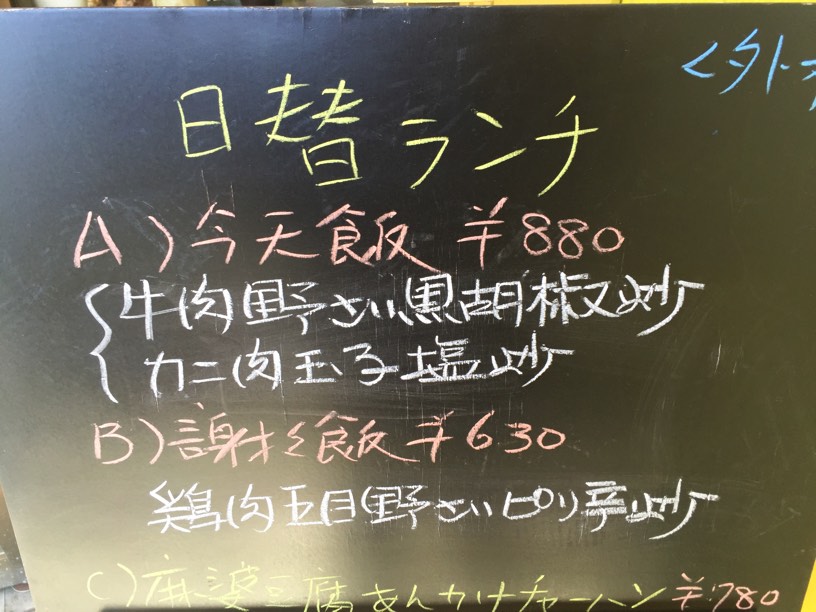 <外
日替ランチ
A)今天飯 ¥880
牛肉野さい黒胡椒炒
カニ肉玉子塩炒
B)謝々飯 ¥630
鶏肉五目野さいピリ辛炒
C)麻婆豆腐あんかけチャーハン ¥780